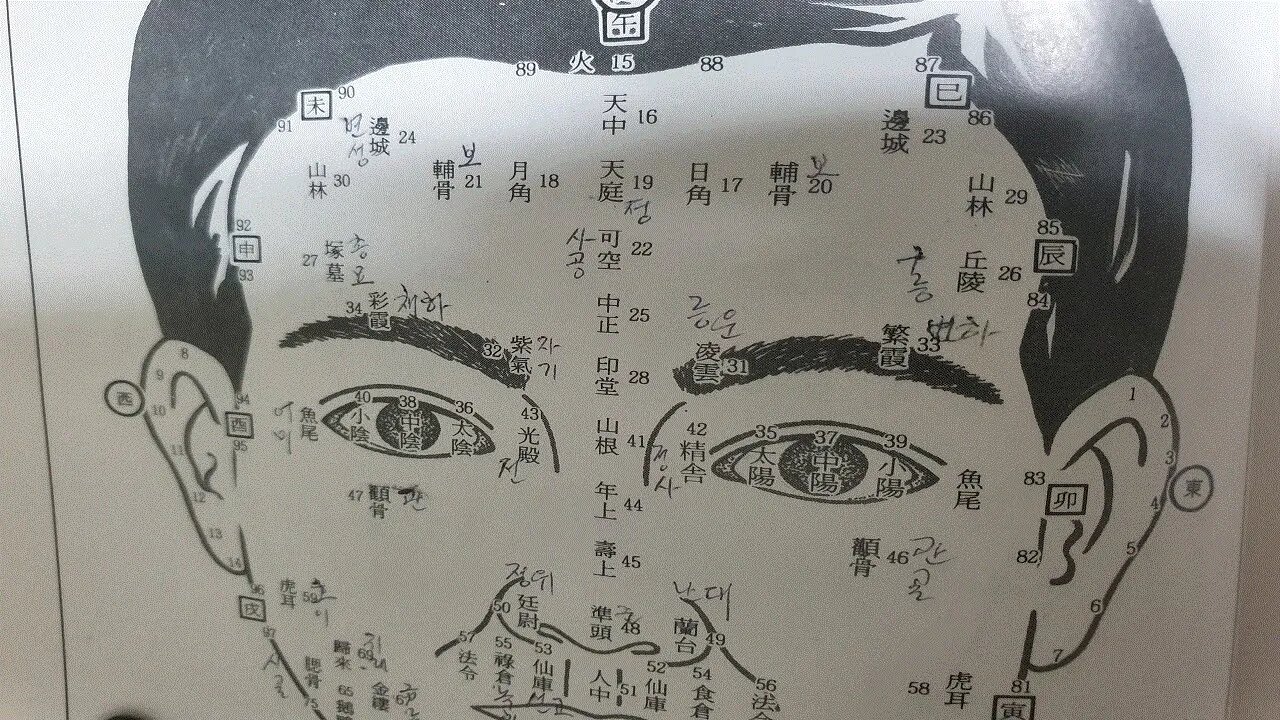 午
89 火 15 88 87
未 90 巳
91 변성 邊城 24 天中 16 邊城 23 86
山林 30 輔骨 보 21 月角 18 天庭 19 정 日角 17 輔骨 보 20 山林 29
92 85
申 27 塚墓 총묘 사공 可空 22 굴릉 丘陵 26 辰
93 84
34 彩霞 채하 中正 25 릉운 繁霞 33 번하
32 紫氣 자기 印堂 28 凌雲 31
8 9 10 11 12 13 14
酉 酉 94 95
어미 魚尾 40 小陰 38 中陰 36 太陰 43 光殿 전 山根 41 42 精舍 정사 35 太陽 37 中陽 39 小陽 魚尾
1 2 3 4 5 6 7
83 卯 東
82
47 顴骨 관 年上 44
壽上 45 顴骨 46 관골
96 戌 97
虎耳 59 호이 정위 50 廷尉 準頭 48 난대 蘭台 49
57 法令 55 祿倉 53 仙庫 人中 51 52 仙庫 54 食倉 56 法令 58 虎耳 81 寅
歸來 69 시골 腮骨 75 65 金縷 67